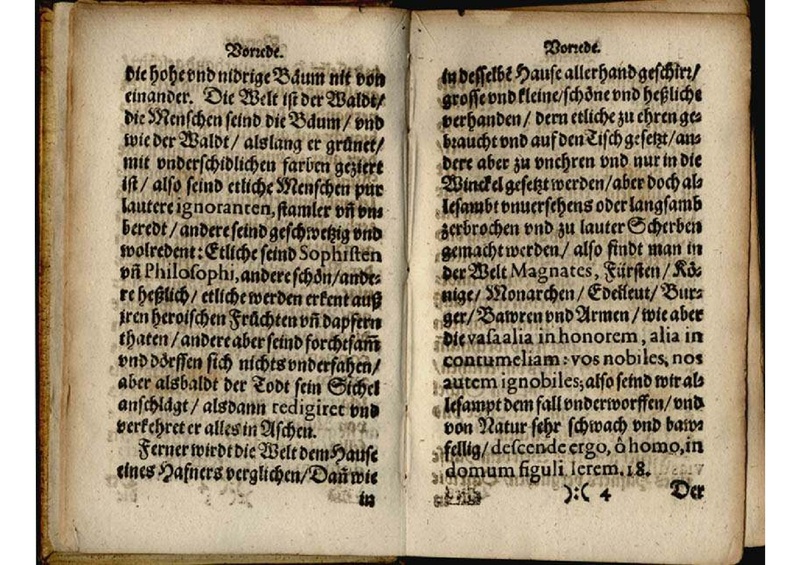 Vorrede.
die hohe vnd nidrige Bäum nit von
einander. Die Welt ist der Waldt/
die Menschen seind die Bäum/ vnd
wie der Waldt/ alslang er grünet/
mit vnderschidlichen farben geziert
ist/ also seind etliche Menschen pur
lautere ignoranten, stamler vñ vn⸗
beredt/ andere seind geschwetzig vnd
wolredent: Etliche seind Sophisten
vñ Philosophi, andere schön/ande⸗
re heßlich/ etliche werden erkent auß
jren heroischen Früchten vñ dapfern
thaten/ andere aber seind forchtsam̃
vnd dörffen sich nichts vnderfahen/
aber alsbaldt der Todt sein Sichel
anschlägt/ alsdann redigiret vnd
verkehret er alles in Aschen.
Ferner wirdt die Welt dem Hause
eines Hafners verglichen/ Dañ wie
in
Vorrede.
in desselbē Hause allerhand geschirr/
grosse vnd kleine/schöne vnd heßliche
verhanden/ dern etliche zu ehren ge⸗
braucht vnd auf den Tisch gesetzt/an⸗
dere aber zu vnehren vnd nur in die
Winckel gesetzt werden/aber doch al⸗
lesambt vnuersehens oder langsamb
zerbrochen vnd zu lauter Scherben
gemacht werden/ also findt man in
der Welt Magnates, Fürsten/ Kö⸗
nige/ Monarchen/ Edelleut/ Bur⸗
ger/ Bawren vnd Armen/ wie aber
die vasa alia in honorem, alia in
contumeliam: vos nobiles, nos
autem ignobiles; also seind wir al⸗
lesampt dem fall vnderworffen/ vnd
von Natur sehr schwach vnd baw⸗
fellig/ descende ergo, ô homo, in
domum figuli Ierem. 18.
):( 4 Der